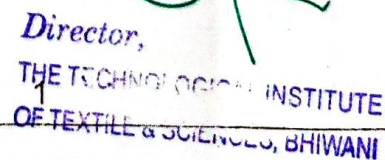 Director,
THE TECHNOLOGICAL INSTITUTE
1
OF TEXTILE & SCIENCES, BHIWANI